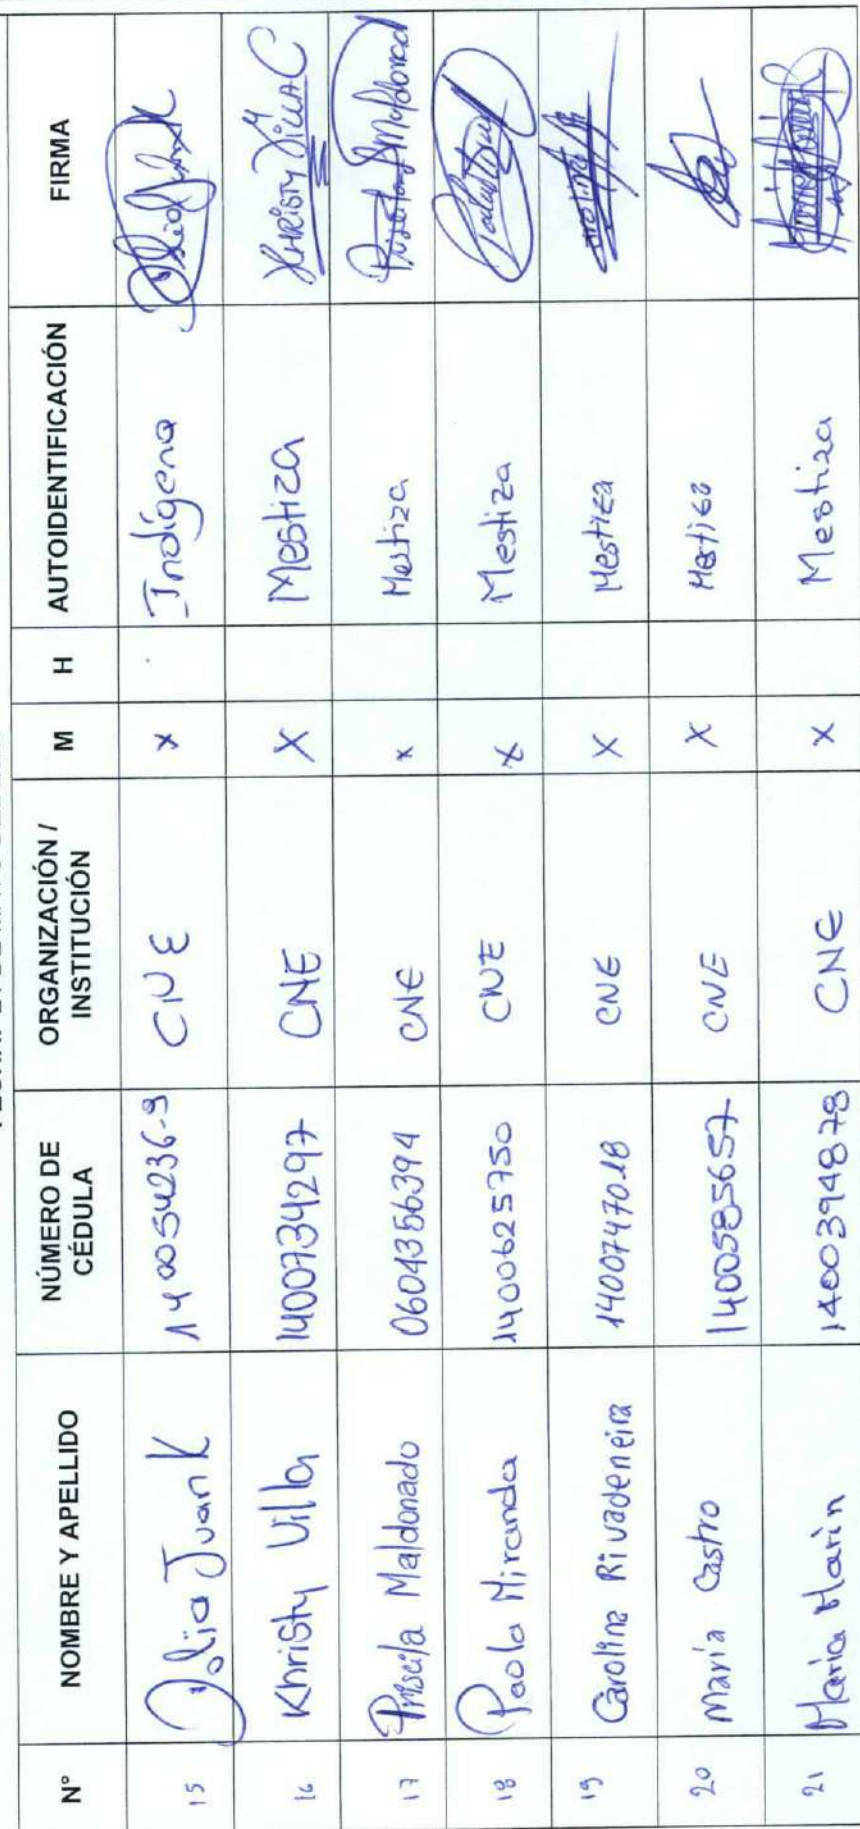 N° NOMBRE Y APELLIDO NÚMERO DE CÉDULA ORGANIZACIÓN / INSTITUCIÓN M H AUTOIDENTIFICACIÓN FIRMA
15 Julia Juank 140054236-9 CNE x Indígena
16 Khristy Villa 1400734297 CNE X Mestiza Khristy Villa C
17 Priscila Maldonado 0604356394 CNE x Mestiza
18 Paola Miranda 1400625750 CNE x Mestiza
19 Carolina Rivadeneira 1400747018 CNE X Mestiza
20 María Castro 1400585657 CNE X Mestiza
21 María Marín 1400394878 CNE X Mestiza